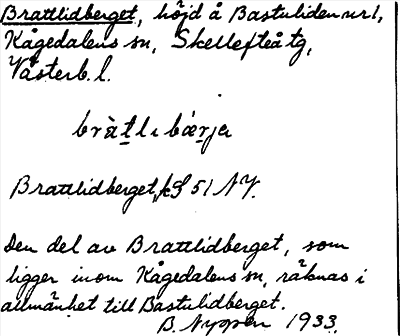 Brattlidberget, höjd å Bastuliden nr 1,
Kågedalens sn, Skellefteå tg,
Västerb. l.
bràtlıbǽrjə
Brattlidberget, kS 51 NV.
Den del av Brattlidberget, som
ligger inom Kågedalens sn, räknas i
allmänhet till Bastulidberget.
B. Nyppen 1933.